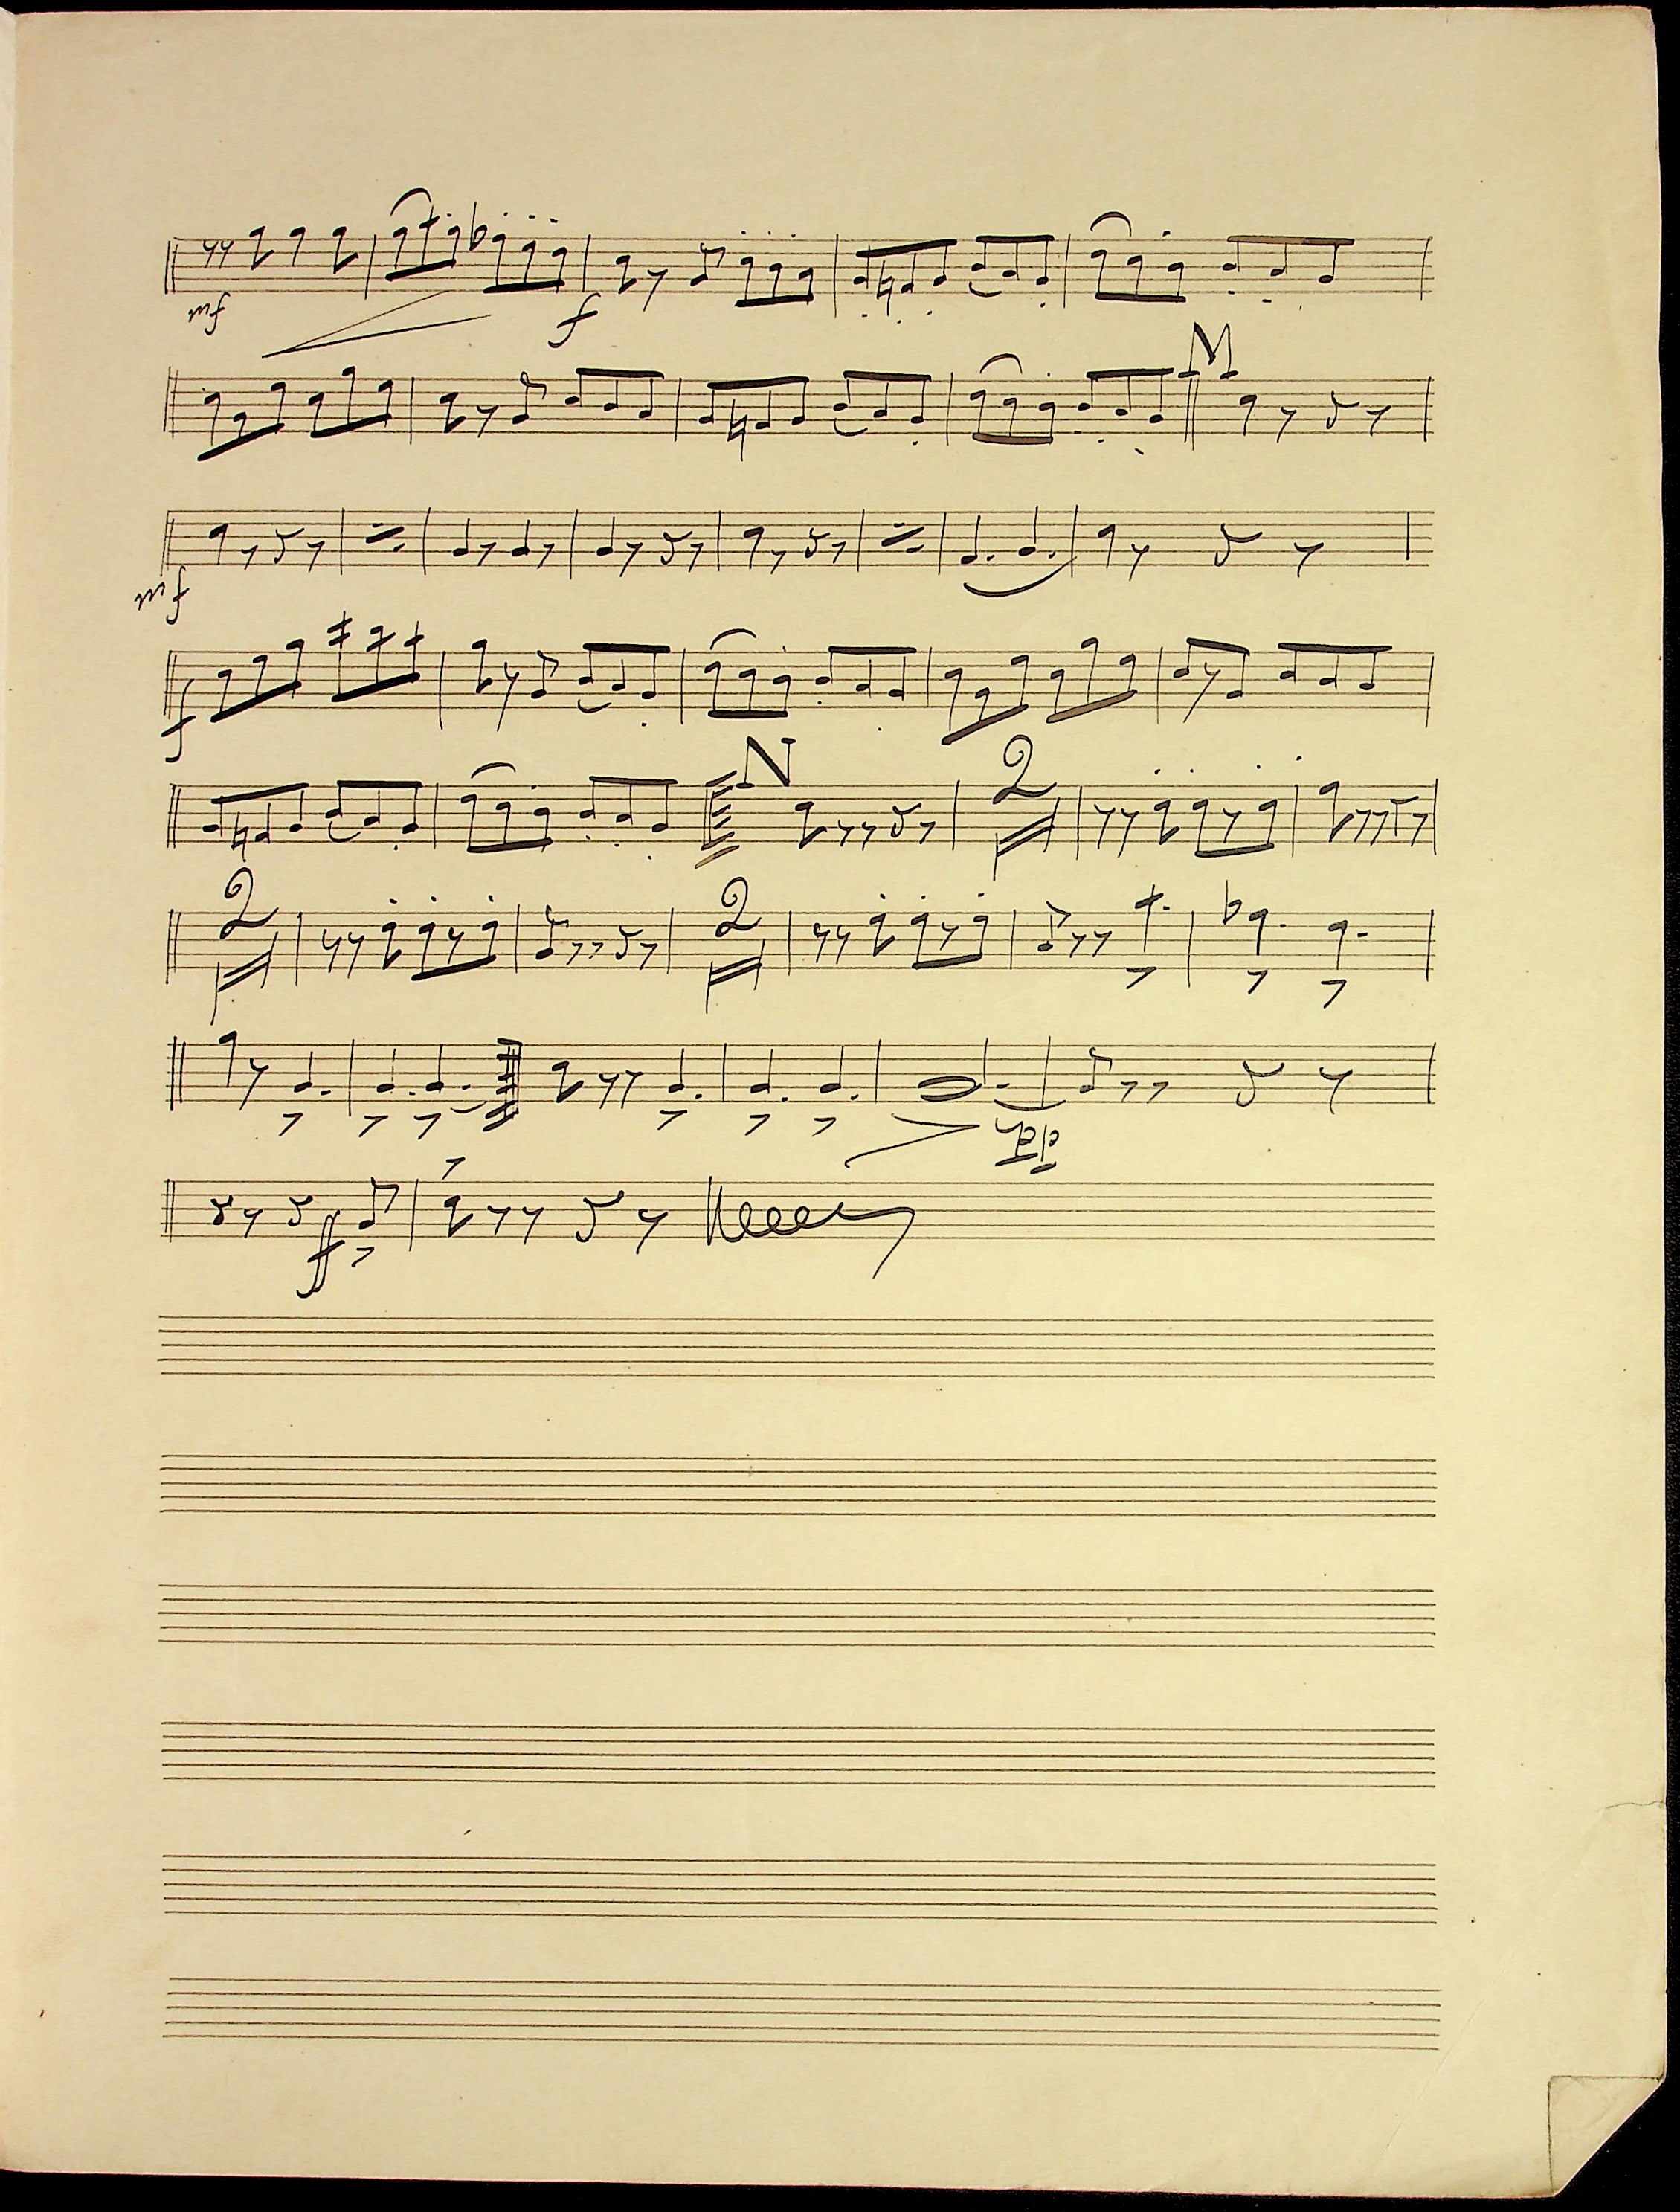 mf f
M
mf
f
N 2
2 2
pp
ff